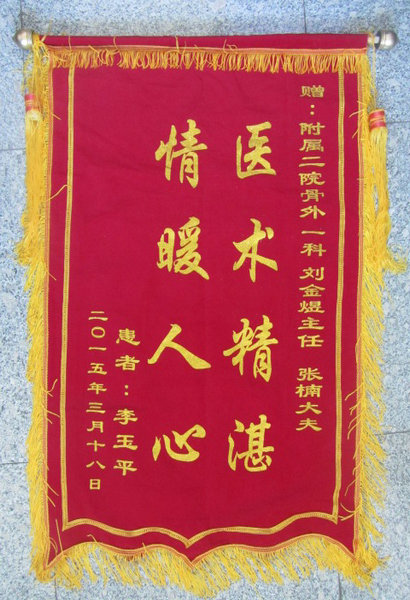 赠：附属二院骨外一科 刘金煜主任 张楠大夫
医术精湛
情暖人心
患者：李玉平
二〇一五年三月十八日